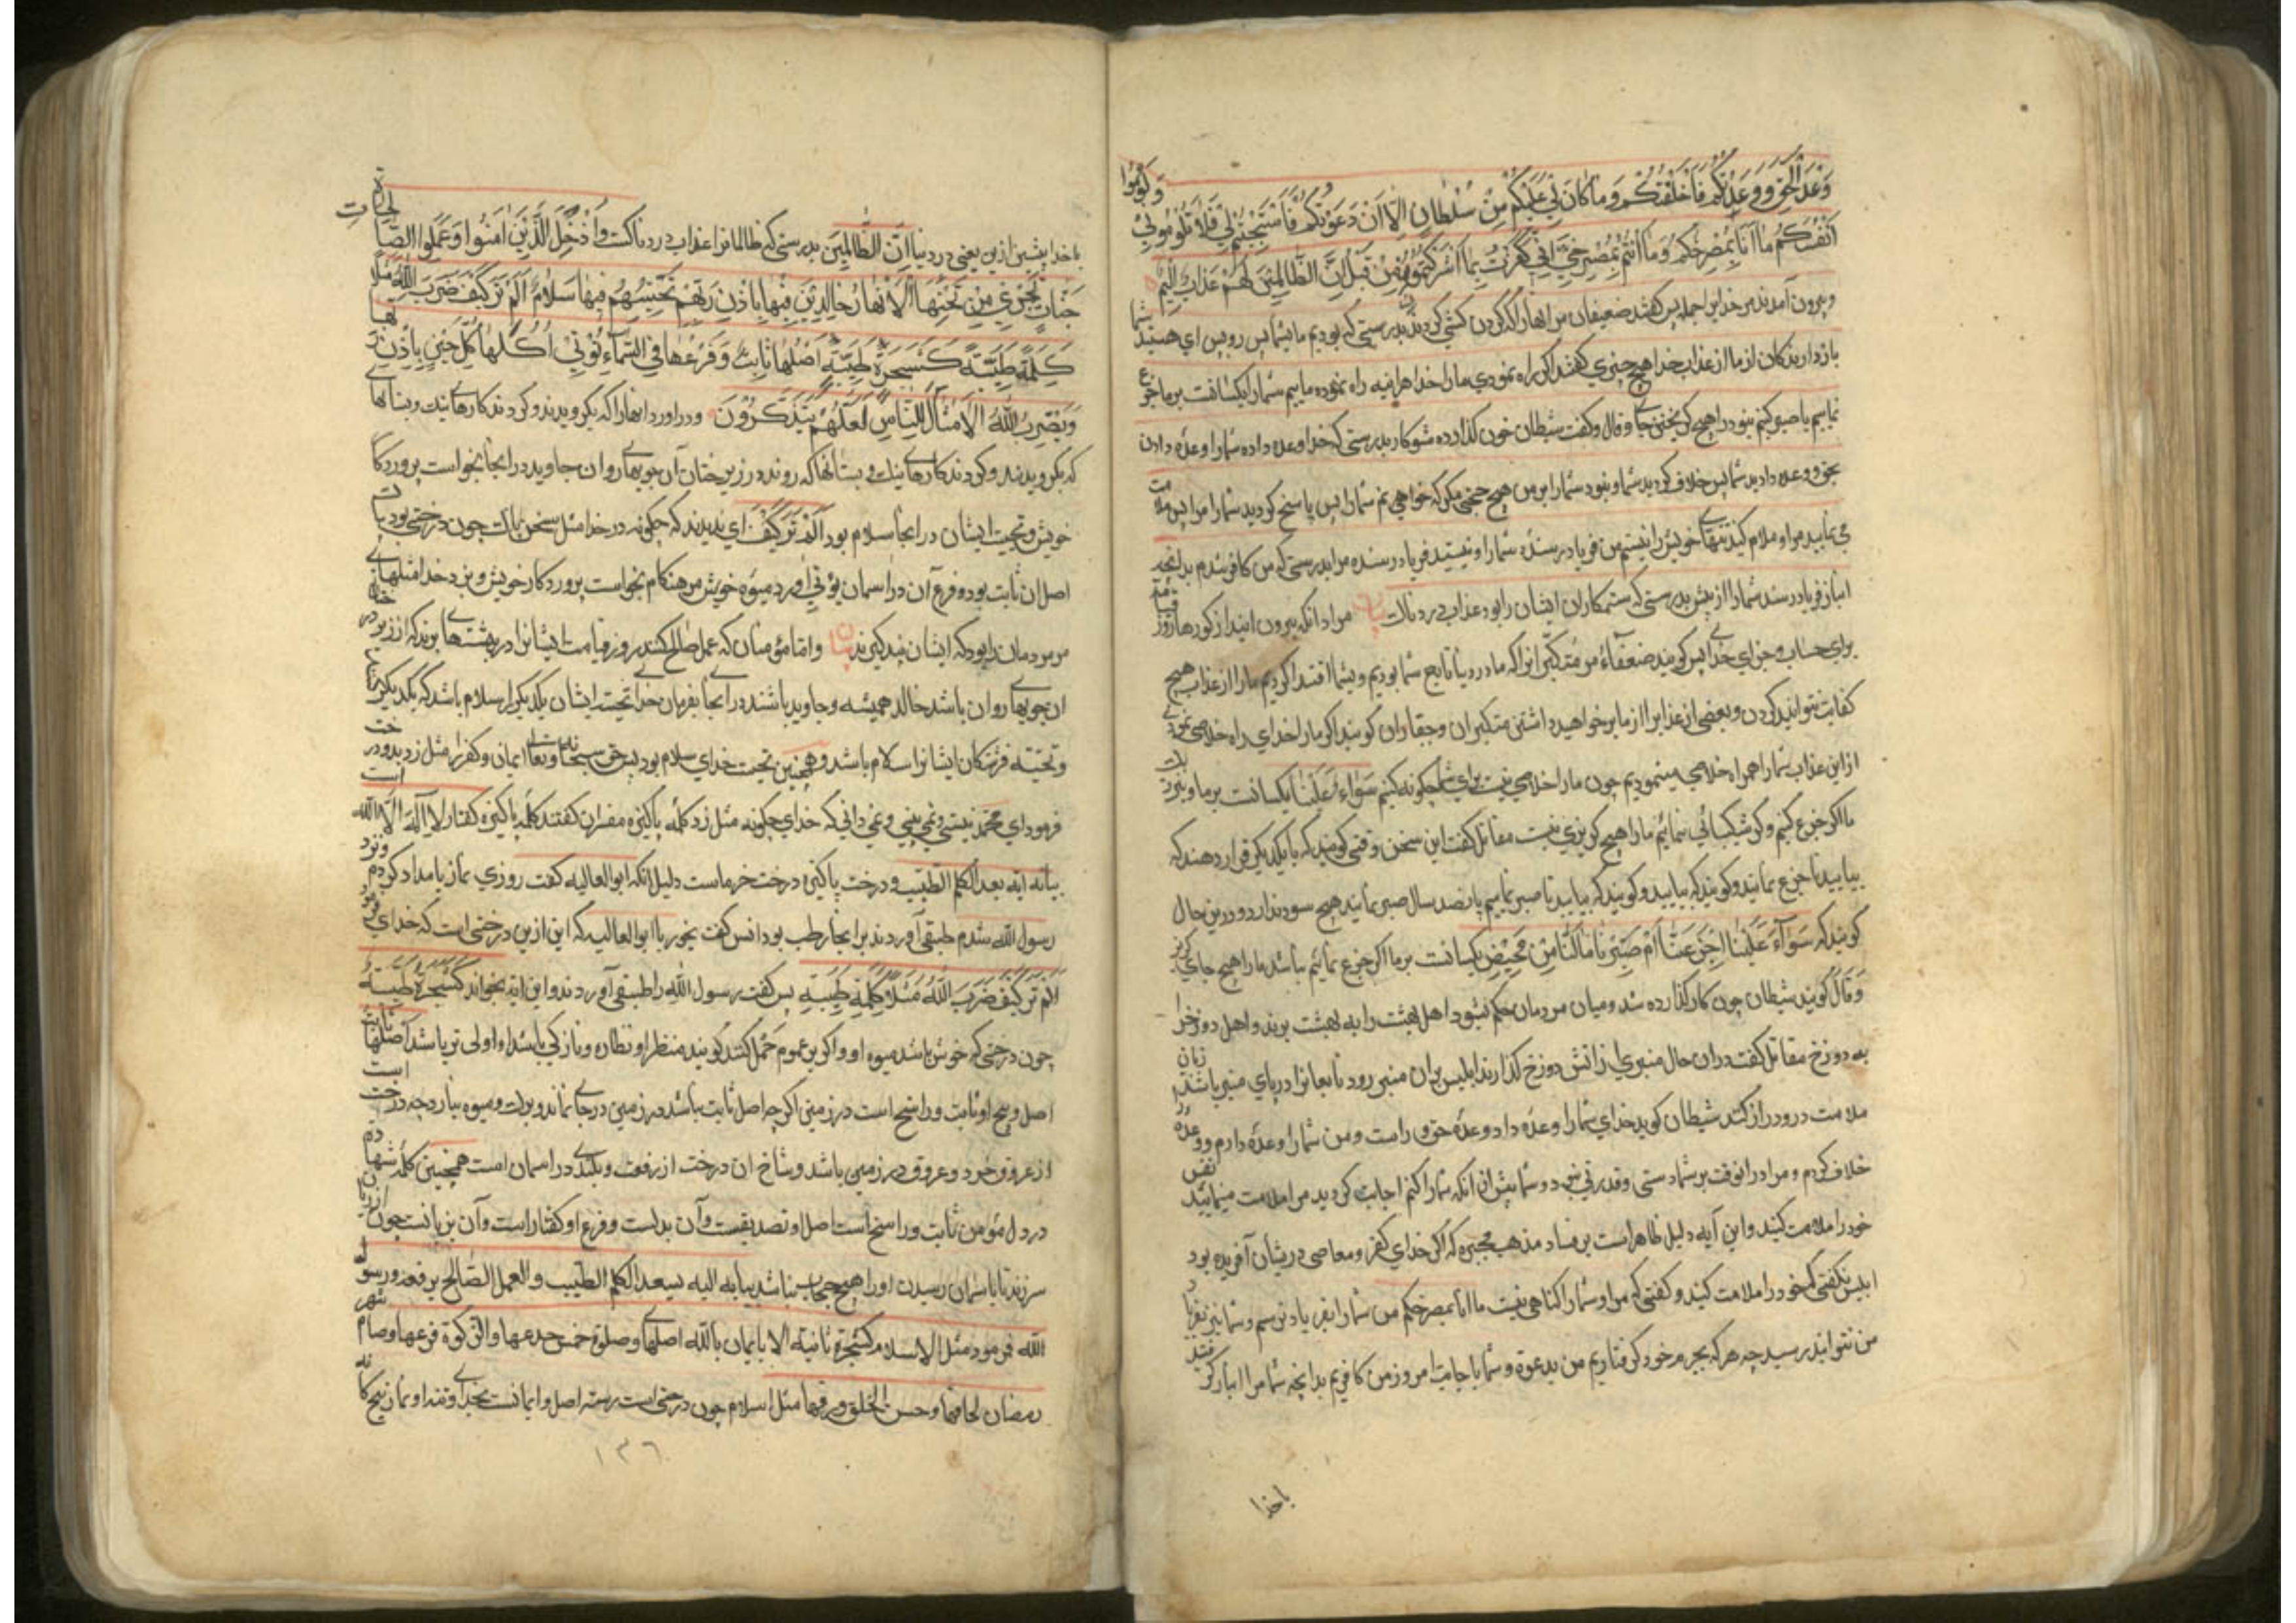 وَعْدَ الْحَقِّ وَوَعَدْتُكُمْ فَأَخْلَفْتُكُمْ وَمَا كَانَ لِيَ عَلَيْكُمْ مِنْ سُلْطَانٍ إِلَّا أَنْ دَعَوْتُكُمْ فَاسْتَجَبْتُمْ لِي فَلَا تَلُومُونِي وَلُومُوا
أَنْفُسَكُمْ مَا أَنَا بِمُصْرِخِكُمْ وَمَا أَنْتُمْ بِمُصْرِخِيَّ إِنِّي كَفَرْتُ بِمَا أَشْرَكْتُمُونِ مِنْ قَبْلُ إِنَّ الظَّالِمِينَ لَهُمْ عَذَابٌ أَلِيمٌ
وبیرون آمدند مر خدایرا جمله پس کفتند ضعیفان مر انهارا که کردن کشی کردند بدرستی که بودیم ما شما پس روپس ای هستید شما
بازدارندکان از ما از عذاب خدا هیچ چیزی کفتند اکر راه نمودی مارا خدا هراینه راه نموده ماییم شمارا یکسانست بر ما جزع
نماییم یا صبر کنیم نبود مارا هیچ کریختن جای وقال وکفت شیطان چون کذارده شو کار بدرستی که خدا وعده داده شمارا وعده دادن
بحق ووعده دادید شما پس خلاف کردید شما ونبود شمارا بر من هیچ حجتی مکر که خواهی نم شمارا پس پاسخ کردید شمارا مرا پس ملامت
می نمایید مرا وملام کنید تنهای خویش را نیستم من فریاد رسنده شمارا ونیستید فریاد رسنده مرا بدرستی که من کافر شدم بدانچه
انباز فریاد رسند شمارا از پیش بدرستی که ستمکاران ایشان را بود عذاب دردناک مراد انکه بیرون ایند از کورها روز قیامة
برای حساب وجزای خدا پس کویند ضعفاء مر متکبرانرا که ما در دنیا تابع شما بودیم وبشما اقتدا کردیم مارا از عذاب هیچ
کفایت نتوانید کردن وبعضی از عذابرا از ما بر خواهید داشتن متکبران وجقاران کویند اکر مارا خدای راه خلاصی نمودی
ازاین عذاب شمارا همراه خلاصی مینمودیم چون مارا خلاصی نیست برای شما چکونه کنیم سَوَاءٌ عَلَيْنَا یکسانست بر ما ونزدیک
ما اکر جزع کنیم وکر شکیبائی نمائیم مارا هیچ کریزی نیست مقاتل کفت این سخن وقتی کویند که با یکدیکر قرار دهند که
بیایید تا جزع نمایند وکویند که بیایید وکویند که بیایید تا صبر نماییم پانصد سال صبر نمایند هیچ سود ندارد ودرین حال
کویند که سَوَاءٌ عَلَيْنَا أَجَزِعْنَا أَمْ صَبَرْنَا مَا لَنَا مِنْ مَحِيصٍ یکسانست بر ما اکر جزع نمائیم نباشد مارا هیچ جای کریز
وَقَالَ کویند شیطان چون کار کذارده شد ومیان مردمان حکم نبود اهل بهشت را به بهشت برند واهل دوزخ را
به دوزخ مقاتل کفت دران حال منبری از اتش دوزخ کذارند ابلیس بران منبر رود تابعانرا در پای منبر باشند زبان
ملامت درو دراز کنند شیطان کوید خدای شمارا وعده داد وعده حق وراست ومن شمارا وعده دارم ووعده را
خلاف کردم ومرا در انوقت بر شما دستی وقدرتی نبود وشما بیش از انکه شمارا کنم اجابت کردید مرا ملامت مینمایید نفس
خود را ملامت کنید واین آیه دلیل ظاهر است بر فساد مذهب مجبره که اکر خدای کفر ومعاصی در ایشان آفریده بود
ابلیس نکفتی که خود را ملامت کنید وکفتی که مرا وشمارا کناهی نیست ما انا بمصرخکم من شمارا بفریاد نرسم وشما نیز بفریاد
من نتوانید رسید چه هر که بجرم خود کرفتاریم من بدعوة وشما باجابت امروز من کافریم بدانچه شما مرا انباز کرفتند
باخدا
باخدا پیشین ازین یعنی در دنیا إِنَّ الظَّالِمِينَ بدرستی که ظالمانرا عذاب دردناکست وَأُدْخِلَ الَّذِينَ آمَنُوا وَعَمِلُوا الصَّالِحَاتِ
جَنَّاتٍ تَجْرِي مِنْ تَحْتِهَا الْأَنْهَارُ خَالِدِينَ فِيهَا بِإِذْنِ رَبِّهِمْ تَحِيَّتُهُمْ فِيهَا سَلَامٌ أَلَمْ تَرَ كَيْفَ ضَرَبَ اللَّهُ مَثَلًا
كَلِمَةً طَيِّبَةً كَشَجَرَةٍ طَيِّبَةٍ أَصْلُهَا ثَابِتٌ وَفَرْعُهَا فِي السَّمَاءِ تُؤْتِي أُكُلَهَا كُلَّ حِينٍ بِإِذْنِ رَبِّهَا
وَيَضْرِبُ اللَّهُ الْأَمْثَالَ لِلنَّاسِ لَعَلَّهُمْ يَتَذَكَّرُونَ ودر اورد انهارا که بکرویدند وکردند کارهای نیک وبستانها
که بکرویدند وکردند کارهای نیک وبستانها که رونده زیر درختان آن جویها روان جاوید در انجا بخواست پروردکار
خویش وتحیت ایشان در انجا سلام بود أَلَمْ تَرَ كَيْفَ ای ندیدند که چکونه در خدا مثل سخن پاک چون درختی بود پاک
اصل ان ثابت بود وفرع آن در اسمان یوتی اورد میوه خویش هر هنکام بخواست پروردکار خویش وبزد خدا مثلهای
مر مردمانرا بود که ایشان پند کیرند واما مؤمنان که عمل صالح کنند روز قیامت ایشانرا در بهشتها برند که از زیر درختان
ان جویها روان باشد خالد همیشه وجاوید باشند در انجا بفرمان خدا تحیت ایشان یکدیکررا سلام باشد که یکدیکررا
وتحیته فرشتکان ایشانرا سلام باشد وهمچنین تحیت خدای سلام بود پس حق سبحانه وتعالی ایمان وکفررا مثل زد بدو درخت
فرمود ای محمد نیستی ونمی بینی ونمی دانی که خدای چکونه مثل زد کلمه پاکیزه مفسران کفتند کلمه پاکیزه کفتار لا اله الا الله است
بیانه ایه یصعد الکلم الطیب ودرخت پاکیزه درخت خرماست دلیل انکه ابوالعالیه کفت روزی نماز بامداد کردم ونزد
رسول الله شدم طبقی آوردند برانجا رطب بود انس کفت بخور یا ابوالعالیه که این ازین درختی است که خدای فرمود
أَلَمْ تَرَ كَيْفَ ضَرَبَ اللَّهُ مَثَلًا كَلِمَةً طَيِّبَةً پس کفت رسول الله را طبقی آوردند واین ایه بخواند كَشَجَرَةٍ طَيِّبَةٍ
چون درختی که خوش باشد میوه او واکر بر عموم حمل کنند کویند منظر او نظاره ونازکی باشد او اولی تر باشد اصلها ثابت
اصل وبیخ او ثابت وراسخ است در زمین اکر چه اصل ثابت باشد در زمین در جای نماند وبرک ومیوه بیارد چه درخت است
از عروق خورد وعروق در زمین باشد وشاخ ان درخت از رفعت وبلندی در اسمان است همچنین کلمه شهاده
در دل مؤمن ثابت وراسخ است اصل او تصدیقست وآن بدلست وفرع او کفتار است وآن بزبانست چون از زبان
سرزند تا باسمان رسیدن اورا هیچ حجاب نباشد بیانه الیه یصعد الکلم الطیب والعمل الصالح یرفعه ورسول
الله فرمود مثل الاسلام کشجرة ثابتة الا بایمان بالله اصلها وصلوة خمس جذعها والزکوة فرعها وصیام شهر
رمضان لحاقها وحسن الخلق ورقها مثل اسلام چون درختی است رسته اصل او ایمانست بخدای وتنه او نماز پنجکانه
۱۳٦